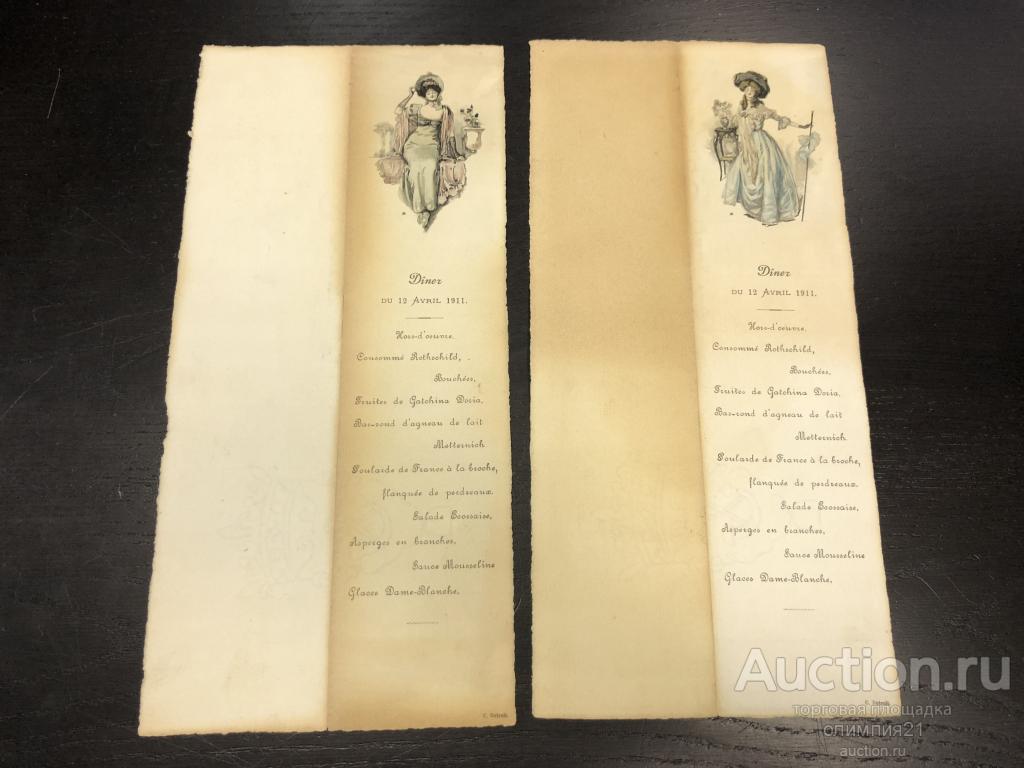 Dîner
DU 12 AVRIL 1911.
Hors-d'oeuvre.
Consommé Rothschild,
Bouchées,
Truites de Gatchina Doria,
Bas-rond d'agneau de lait
Metternich
Poularde de France à la broche,
flanquée de perdreaux.
Salade Ecossaise,
Asperges en branches,
Sauce Mousseline
Glaces Dame-Blanche,
Dîner
DU 12 AVRIL 1911.
Hors-d'oeuvre.
Consommé Rothschild,
Bouchées,
Truites de Gatchina Doria,
Bas-rond d'agneau de lait
Metternich
Poularde de France à la broche,
flanquée de perdreaux.
Salade Ecossaise,
Asperges en branches,
Sauce Mousseline
Glaces Dame-Blanche,
Auction.ru
торговая площадка
олимпия21
auction.ru